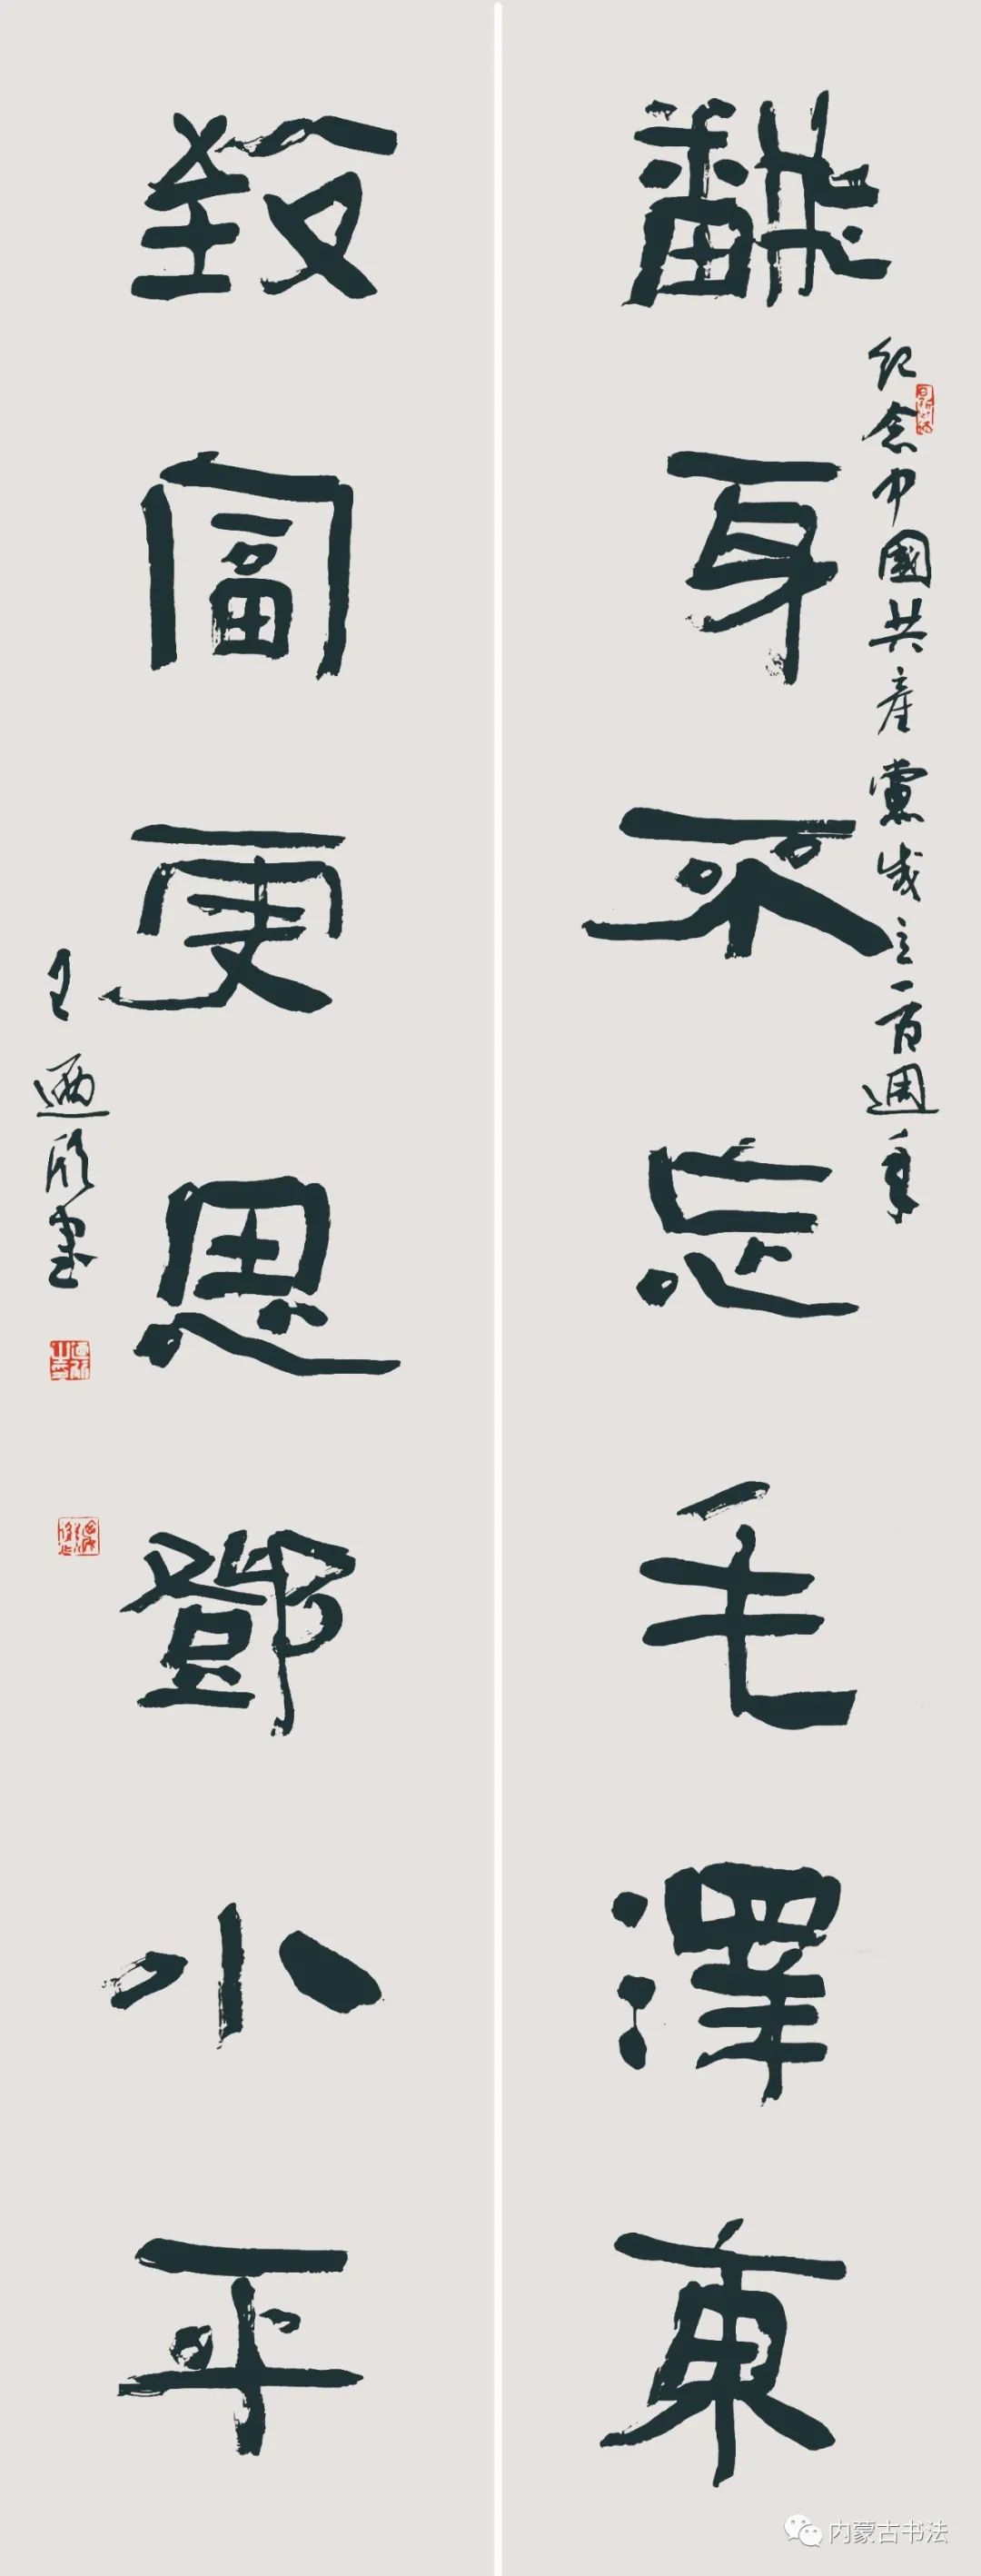 翻身不忘毛澤東
紀念中國共產黨成立一百週年
致富更思鄧小平
王迺欣書
内蒙古书法